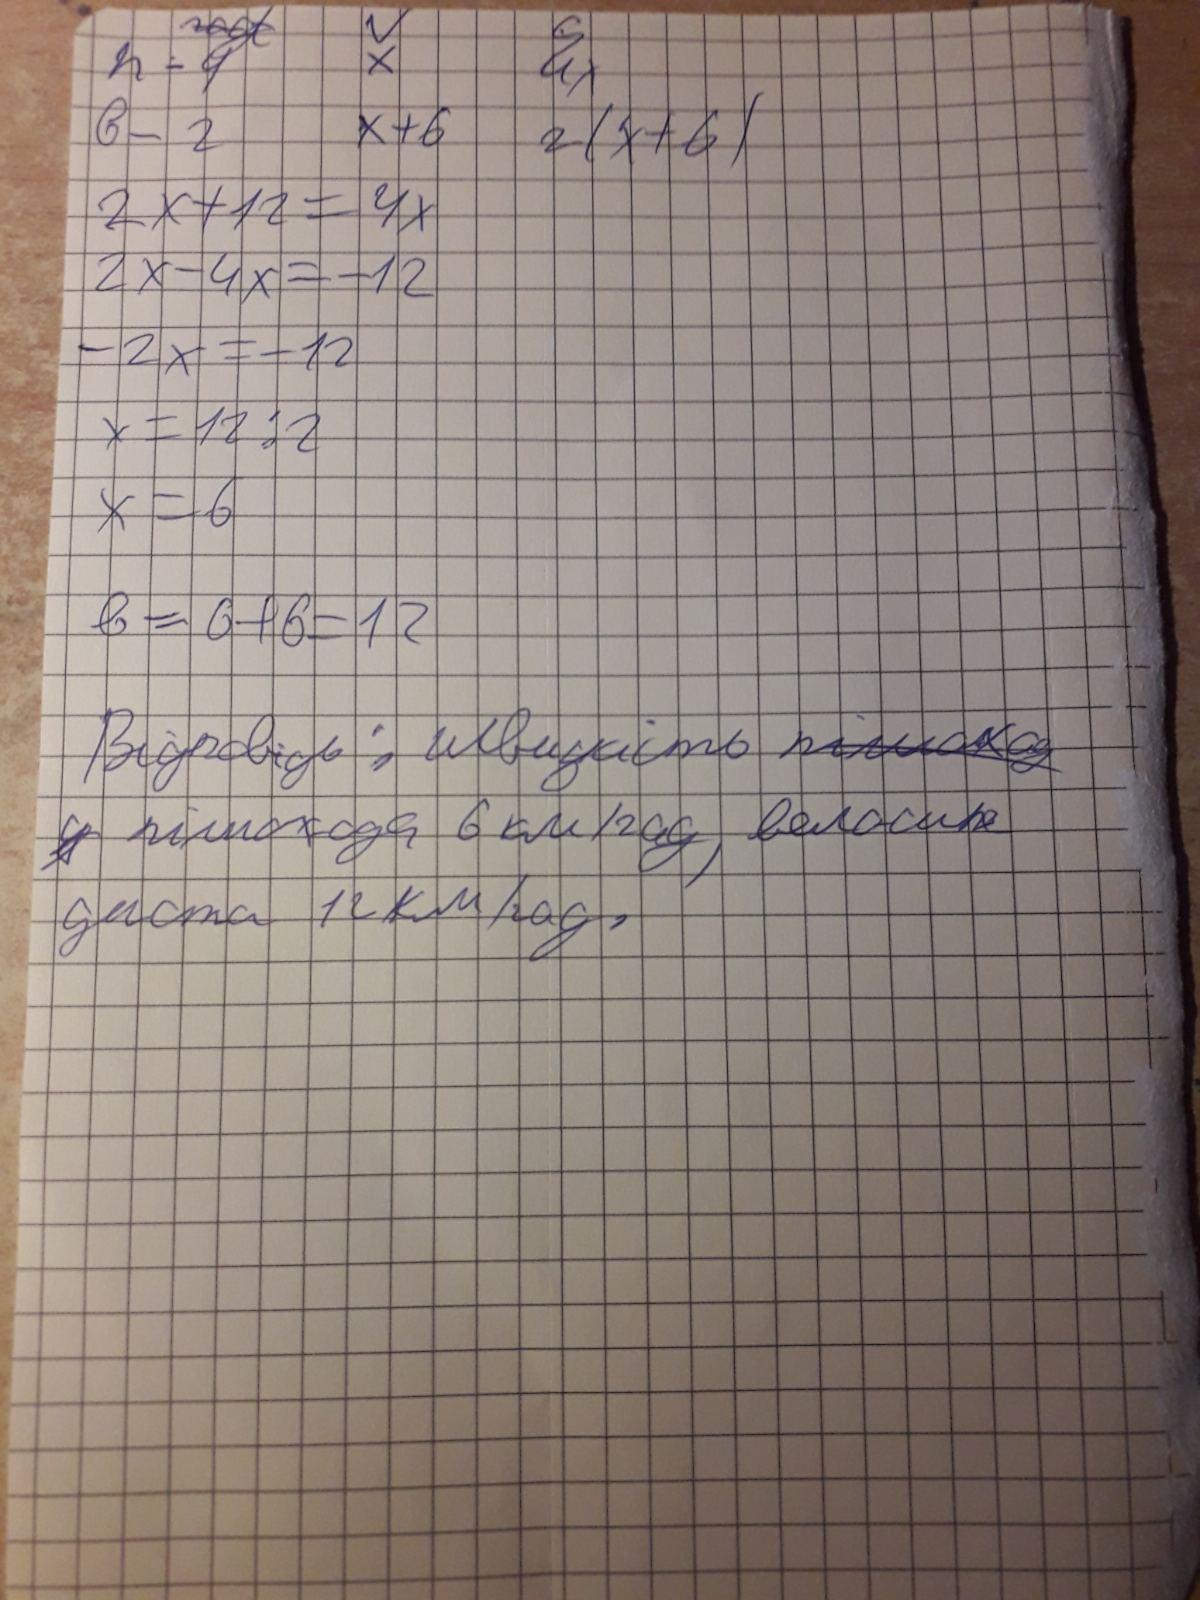 V S
п - 4 x 4x
в - 2 x+6 2(x+6)
2x+12=4x
2x-4x=-12
-2x=-12
x=12:2
x=6
в=6+6=12
Відповідь: швидкість пішоход
пішохода 6 км/год, велосипе
диста 12 км/год.